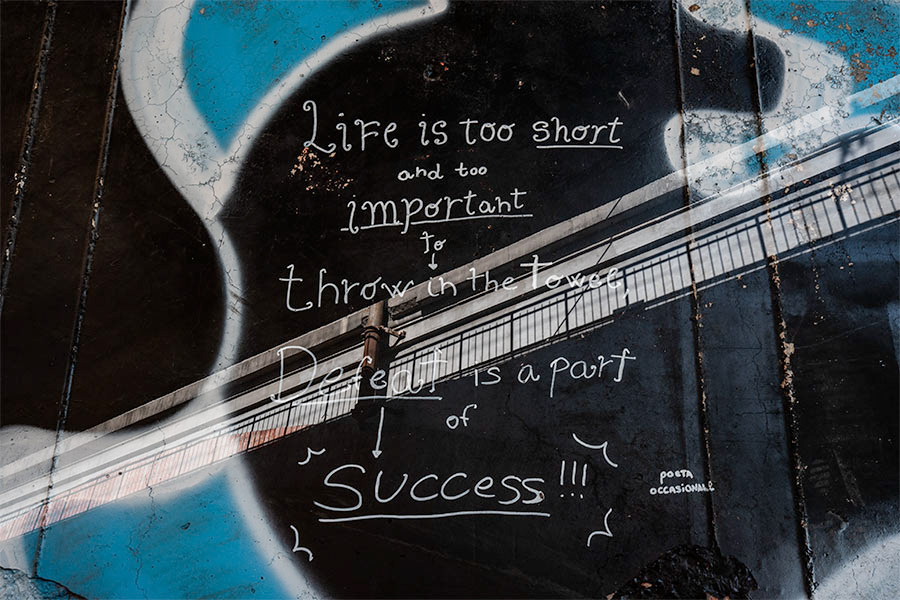 Life is too short
and too
important
to
throw in the Towel,
Defeat is a part
of
Success!!!
POETA
OCCASIONALE